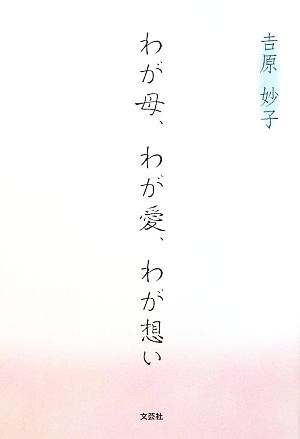 𠮷原 妙子
わが母、わが愛、わが想い
文芸社